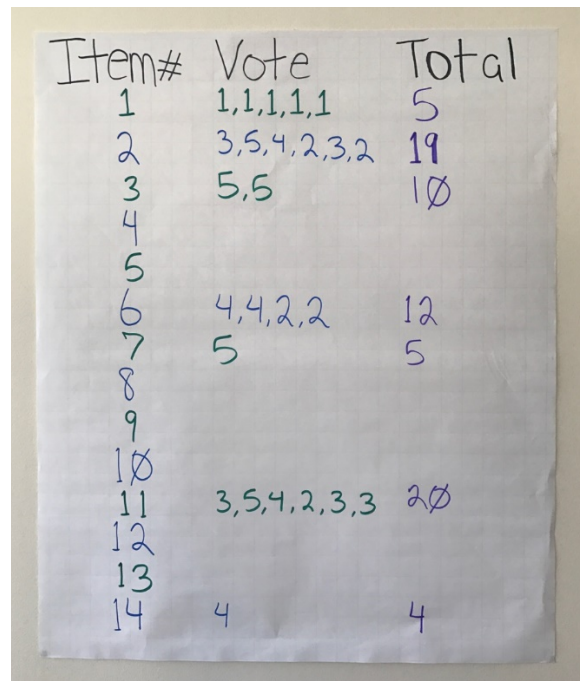 Item# Vote Total
1 1,1,1,1,1 5
2 3,5,4,2,3,2 19
3 5,5 10
4
5
6 4,4,2,2 12
7 5 5
8
9
10
11 3,5,4,2,3,3 20
12
13
14 4 4